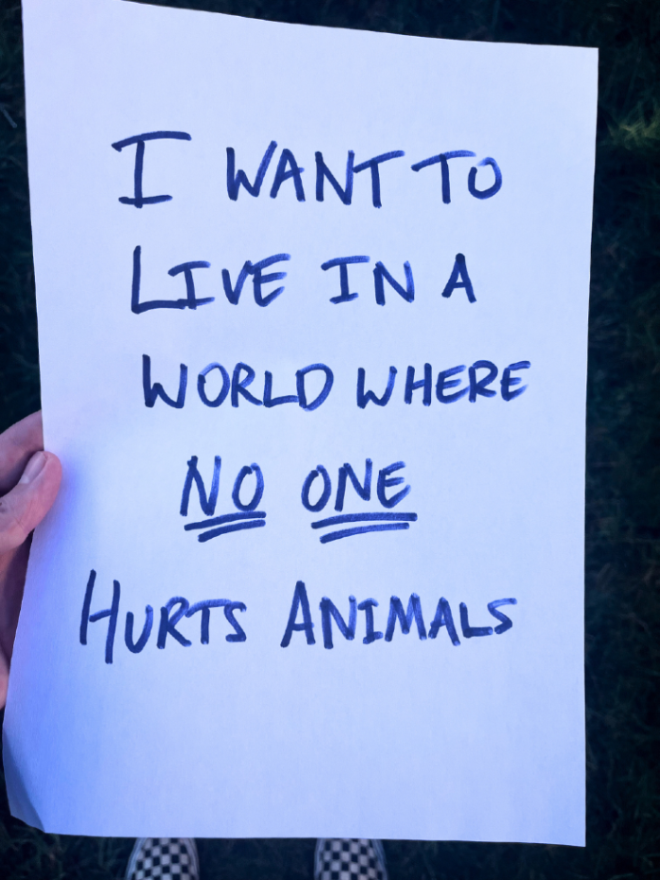 I WANT TO
LIVE IN A
WORLD WHERE
NO ONE
HURTS ANIMALS